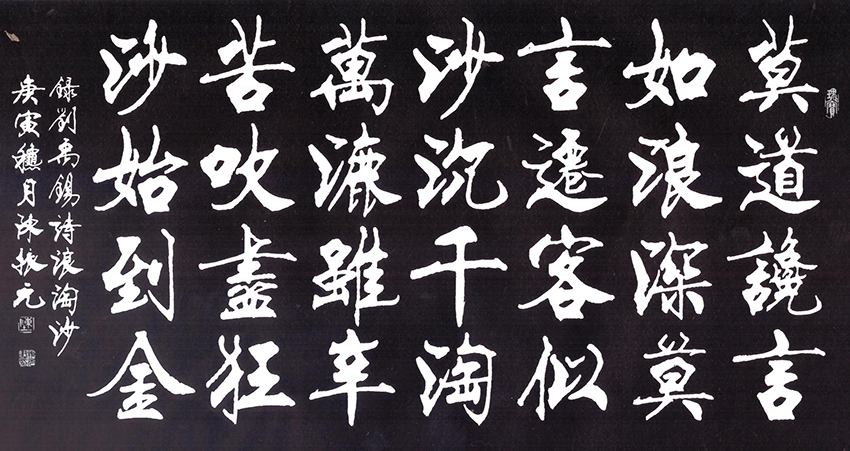 莫道讒言
如浪深莫
言遷客似
沙沉千淘
萬漉雖辛
苦吹盡狂
沙始到金
録劉禹錫詩浪淘沙
庚寅穗月陳振元